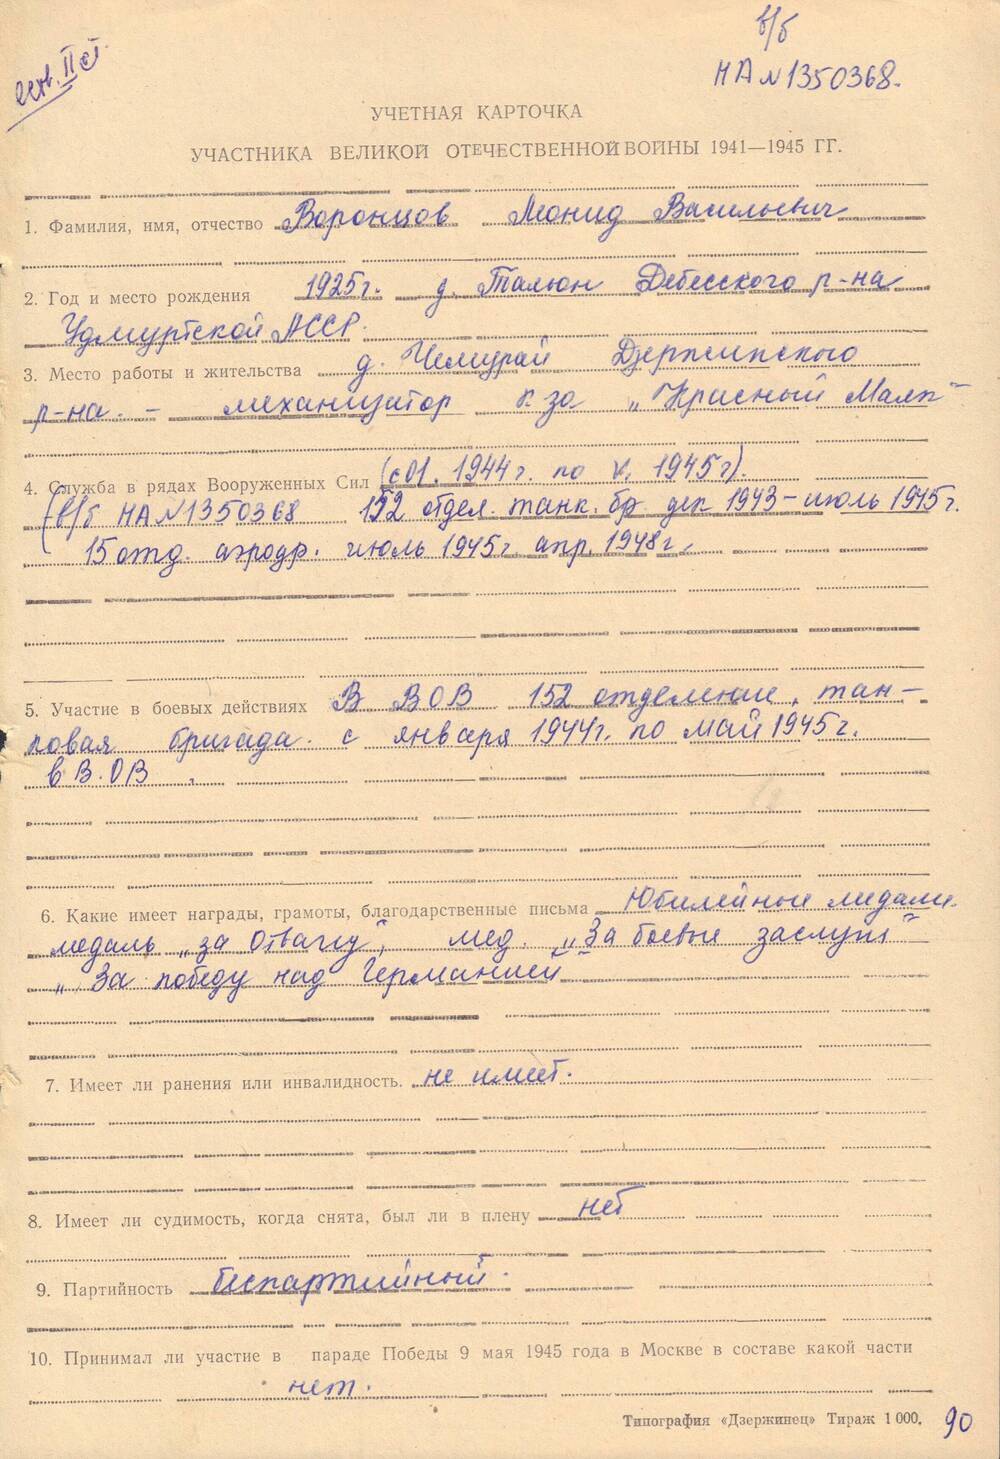 в/б
НА №1350368.
II ст.
УЧЕТНАЯ КАРТОЧКА
УЧАСТНИКА ВЕЛИКОЙ ОТЕЧЕСТВЕННОЙ ВОЙНЫ 1941—1945 ГГ.
1. Фамилия, имя, отчество Воронцов Леонид Васильевич
2. Год и место рождения 1925г. д. Тальон Дебесского р-на
Удмуртской АССР.
3. Место работы и жительства д. Чемурай Дзержинского
р-на. - механизатор к-за „Красный Маяк"
4. Служба в рядах Вооруженных Сил (с 01. 1944г. по V. 1945г).
(в/б НА №1350368 152 отдел. танк. бр. дек 1943 - июль 1945г.
15 отд. аэродр. июль 1945г. апр. 1948г.
5. Участие в боевых действиях В ВОВ 152 отделение, тан-
ковая бригада. с января 1944г. по май 1945г.
в В.ОВ
6. Какие имеет награды, грамоты, благодарственные письма Юбилейные медали.
медаль „За Отвагу", мед. „За боевые заслуги"
„За победу над Германией"
7. Имеет ли ранения или инвалидность. не имеет.
8. Имеет ли судимость, когда снята, был ли в плену нет
9. Партийность беспартийный.
10. Принимал ли участие в параде Победы 9 мая 1945 года в Москве в составе какой части
нет.
Типография «Дзержинец» Тираж 1 000.
90